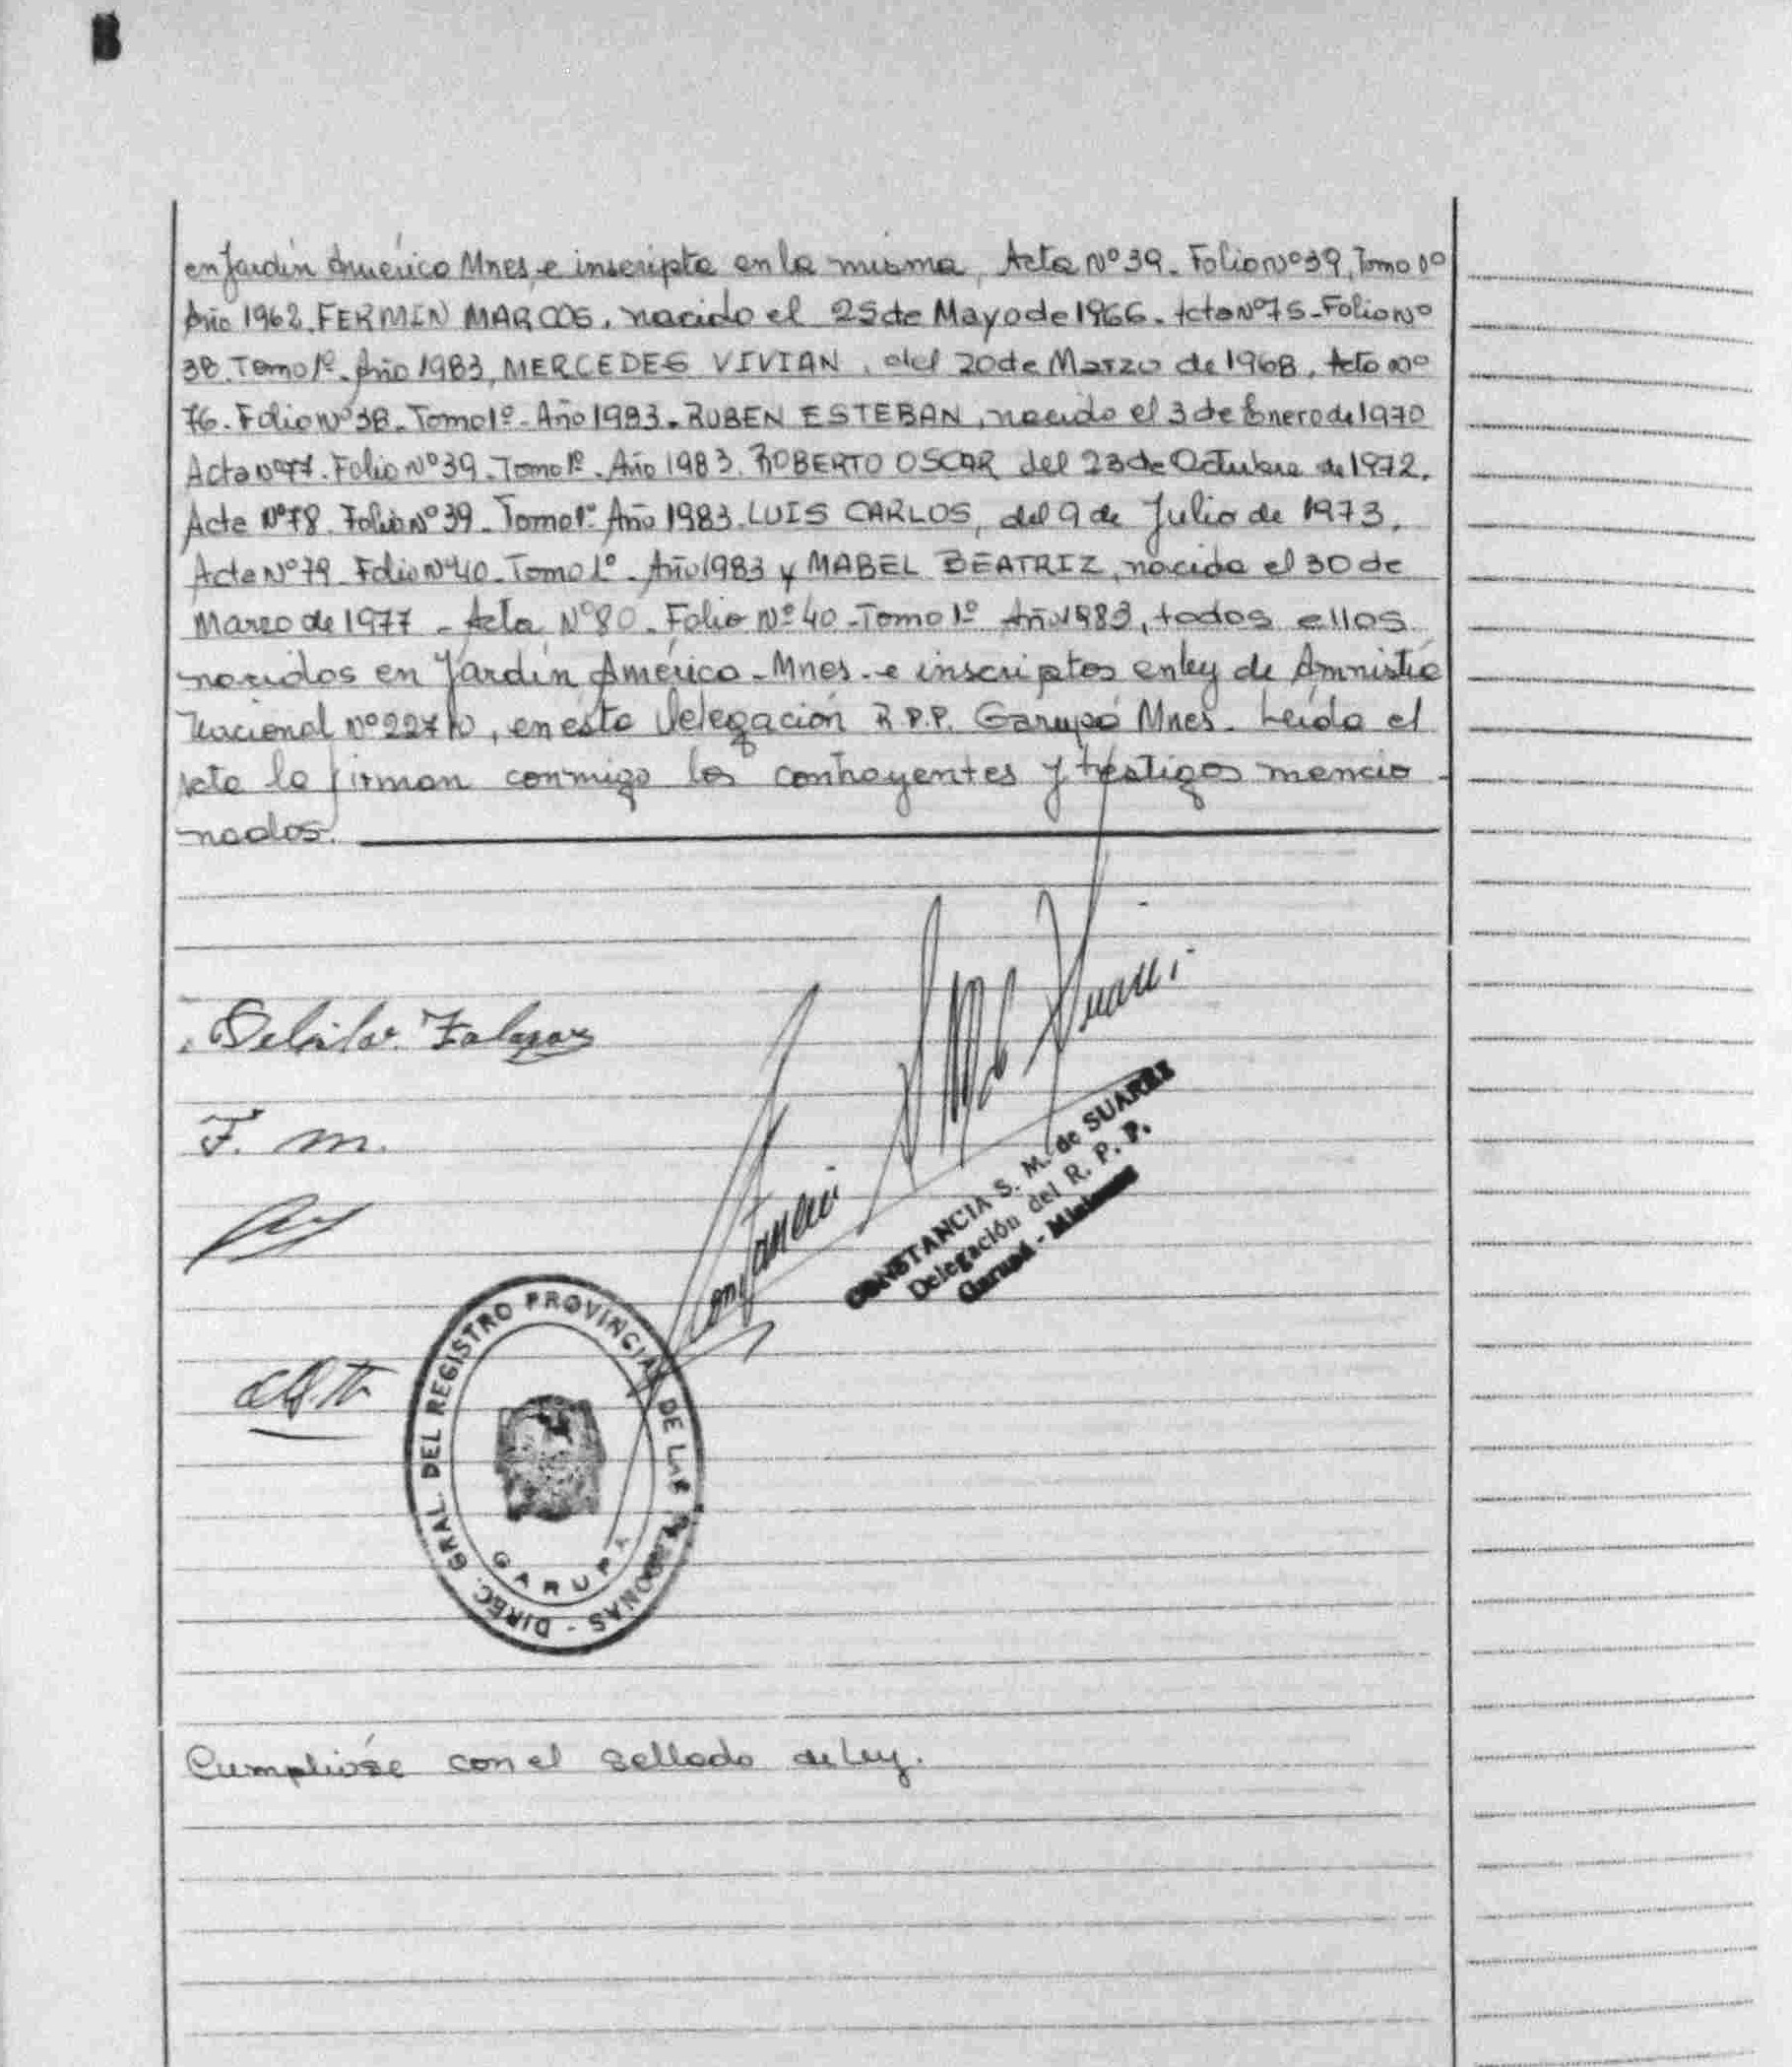 B
en Jardín América Mnes, e inscripta en la misma, Acta Nº 39. Folio Nº 39, Tomo 1º
Año 1962. FERMIN MARCOS, nacido el 25 de Mayo de 1966. Acta Nº 75 - Folio Nº
38. Tomo 1º. Año 1983, MERCEDES VIVIAN, del 20 de Marzo de 1968, Acta Nº
76. Folio Nº 38. Tomo 1º - Año 1983. RUBEN ESTEBAN, nacido el 3 de Enero de 1970
Acta Nº 77. Folio Nº 39. Tomo 1º. Año 1983. ROBERTO OSCAR del 23 de Octubre de 1972.
Acta Nº 78. Folio Nº 39. Tomo 1º Año 1983. LUIS CARLOS, del 9 de Julio de 1973,
Acta Nº 79. Folio Nº 40. Tomo 1º. Año 1983 y MABEL BEATRIZ, nacida el 30 de
Marzo de 1977 - Acta Nº 80. Folio Nº 40 - Tomo 1º Año 1983, todos ellos
nacidos en Jardín América - Mnes - e inscriptos en ley de Amnistía
Nacional Nº, en ésta Delegación R.P.P. Garupá Mnes. Leída el
acta la firman conmigo los contrayentes y testigos mencio
nados.
F. m.
CONSTANCIA S. M. de SUAREZ
Delegación del R. P. P.
Garupá - Misiones
DIREC. GRAL. DEL REGISTRO PROVINCIAL DE LAS PERSONAS -
GARUPA
Cumplióse con el sellado de Ley.